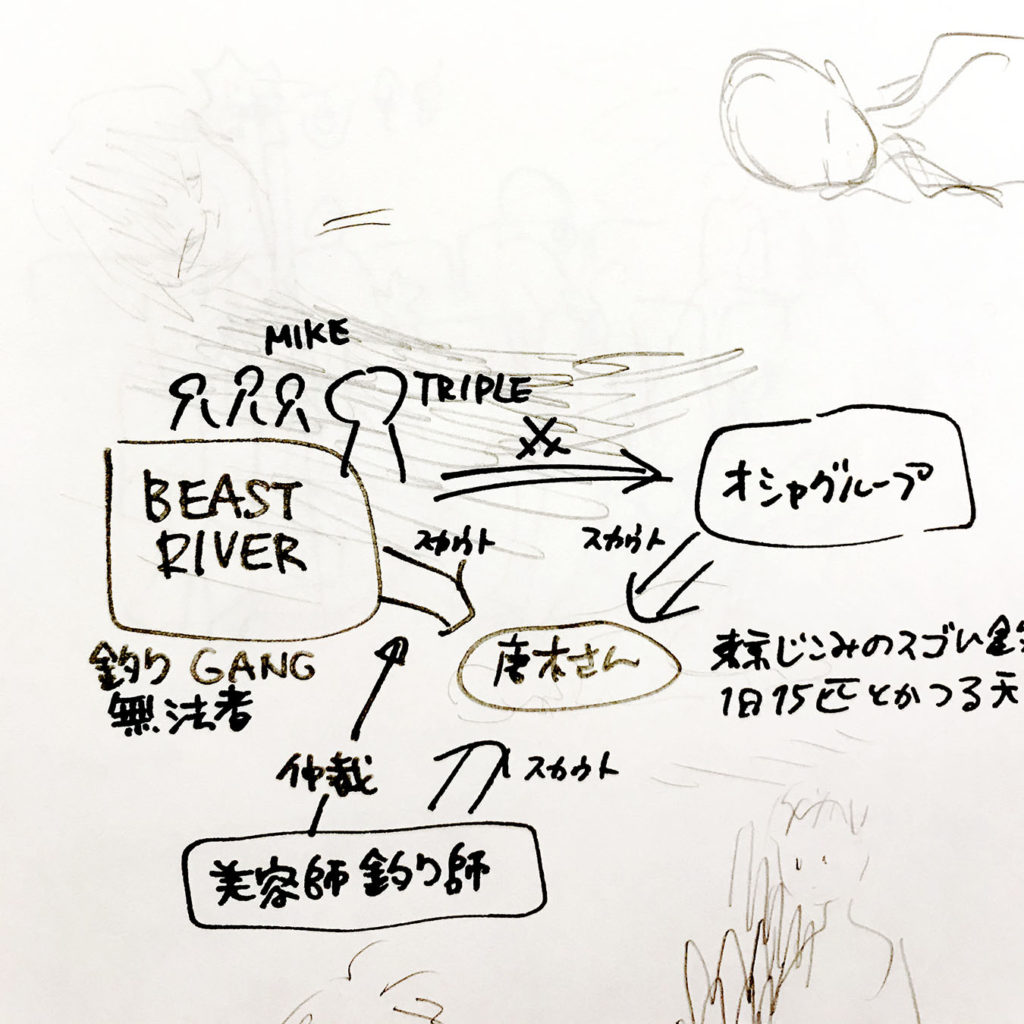 MIKE
TRIPLE
BEAST
RIVER
オシャグループ
スカウト
スカウト
釣り GANG
無法者
唐木さん
東京じこみのスゴい釣
1日15匹とかつる天
仲裁
スカウト
美容師 釣り師